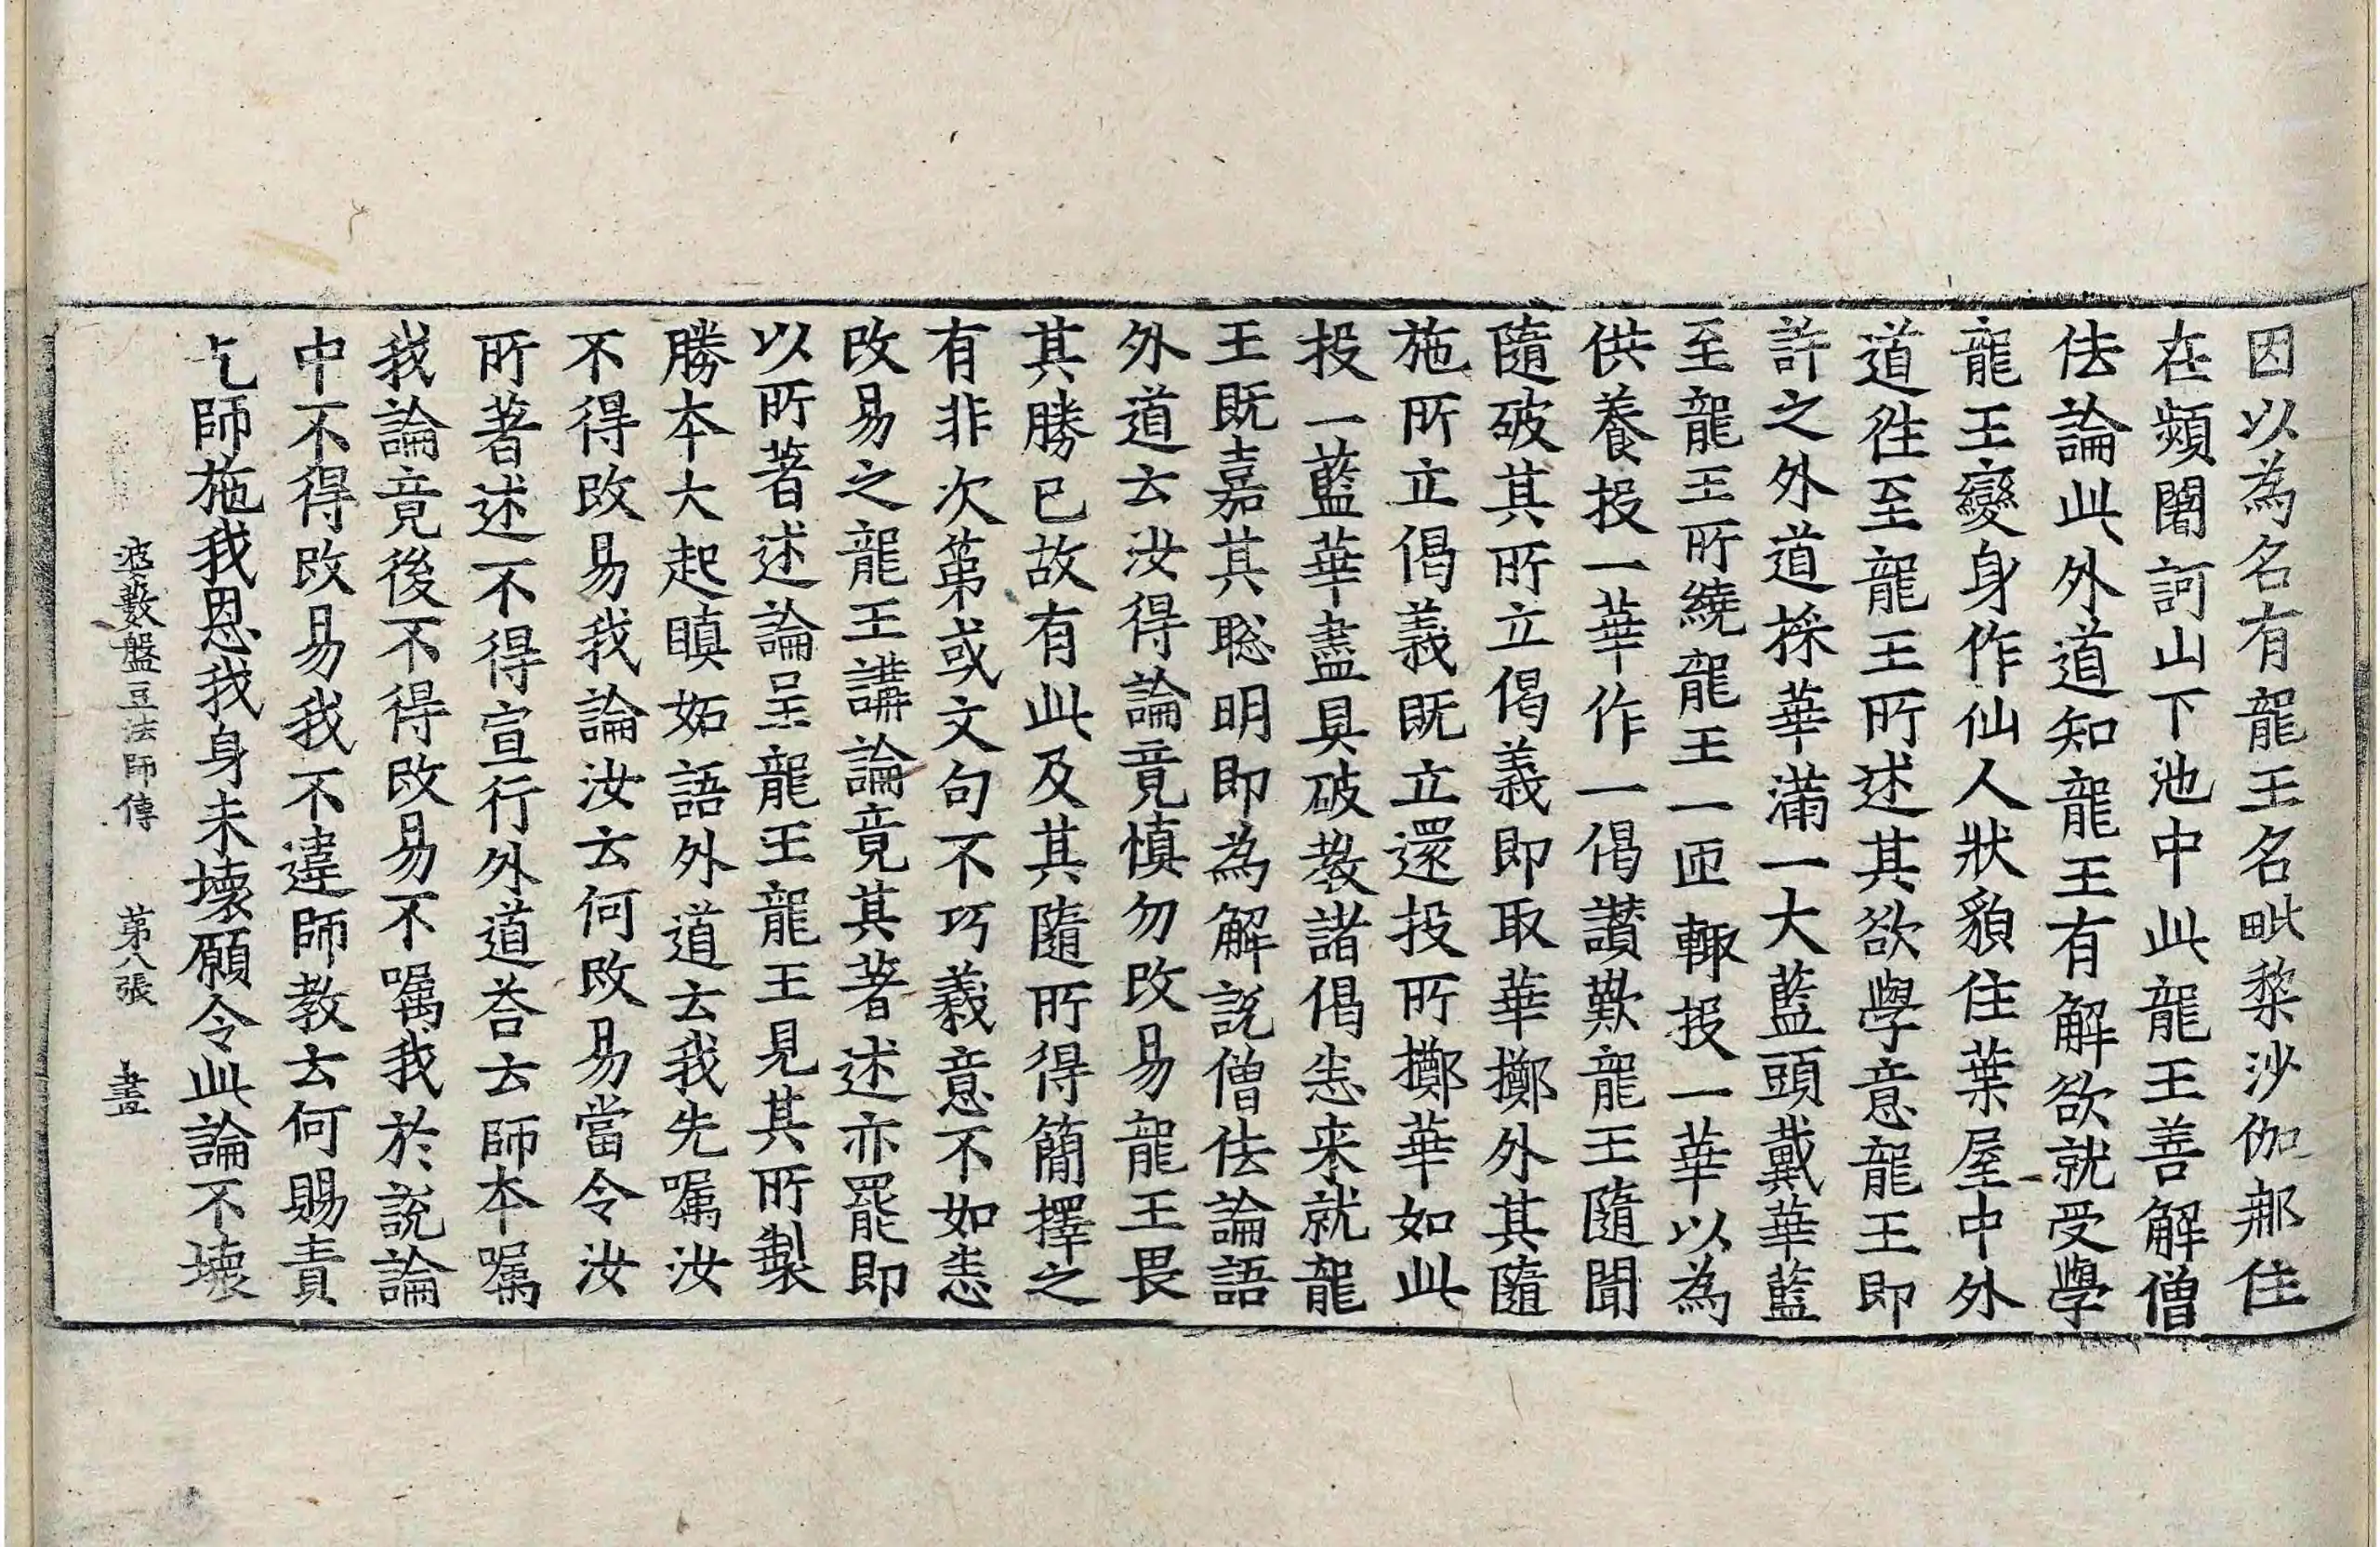 因以為名有龍王名毗棃沙伽那住
在頻闍訶山下池中此龍王善解僧
佉論此外道知龍王有解欲就受學
龍王變身作仙人狀貌住葉屋中外
道往至龍王所述其欲學意龍王即
許之外道採華滿一大藍頭戴華藍
至龍王所繞龍王一匝輙投一華以為
供養投一華作一偈讃歎龍王隨聞
隨破其所立偈義即取華擲外其隨
施所立偈義既立還投所擲華如此
投一藍華盡具破教諸偈悉来就龍
王既嘉其聡明即為解說僧佉論語
外道云汝得論竟慎勿改易龍王畏
其勝已故有此及其隨所得簡擇之
有非次第或文句不巧義意不如悉
改易之龍王講論竟其著述亦罷即
以所著述論呈龍王龍王見其所製
勝本大起瞋妬語外道云我先囑汝
不得改易我論汝云何改易當令汝
所著述不得宣行外道荅云師本囑
我論竟後不得改易不囑我於說論
中不得改易我不違師教云何賜責
乞師施我恩我身未壞願令此論不壞
婆藪盤豆法師傳 第八張 畫